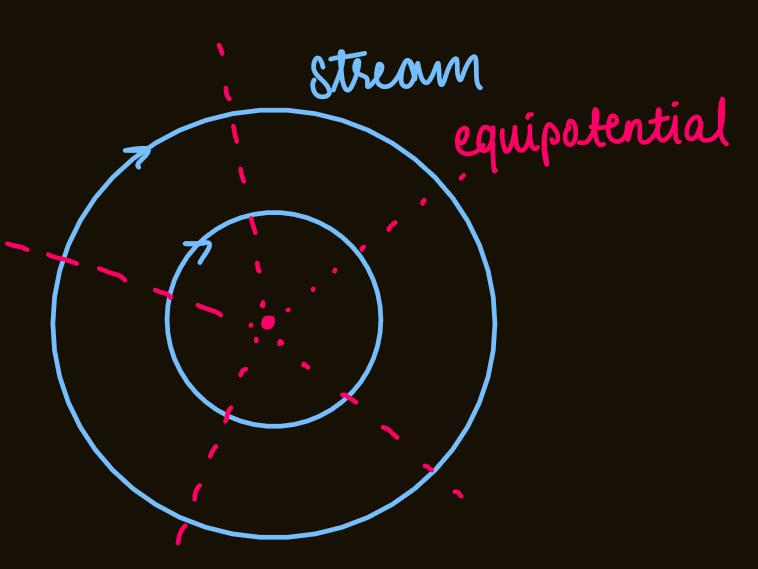 stream
equipotential